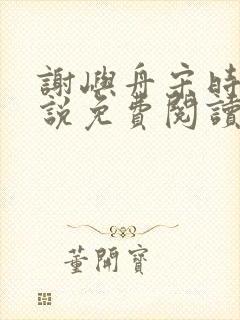 謝嶼舟宋時
說免費閱讀
董開寶